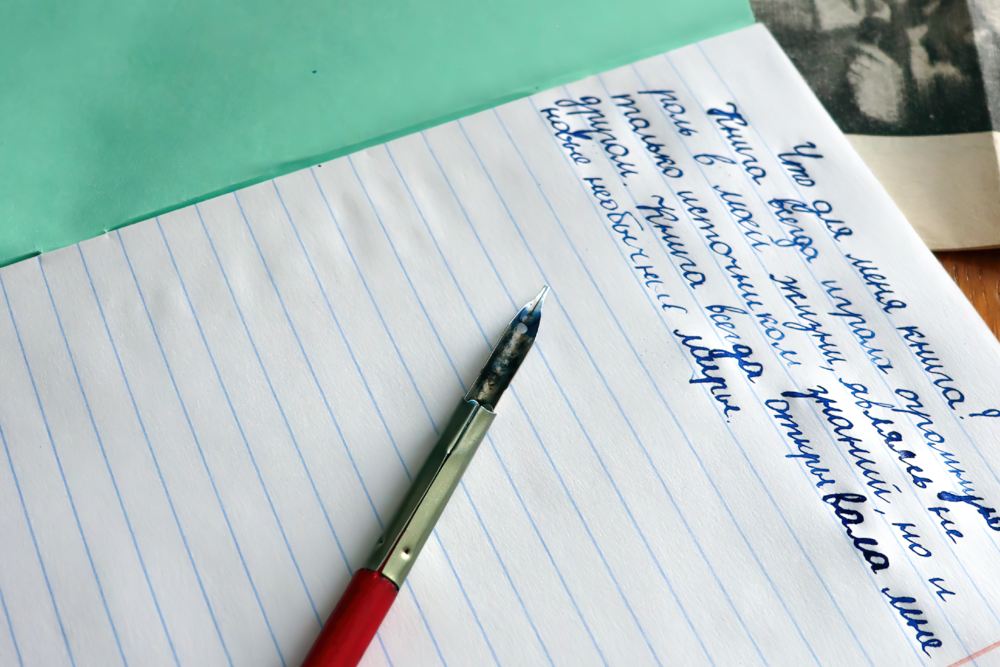 Что для меня книга?
Книга всегда играла огромную
роль в моей жизни, являясь не
только источником знаний, но и
другом. Книга всегда открывала мне
новые необычные миры.